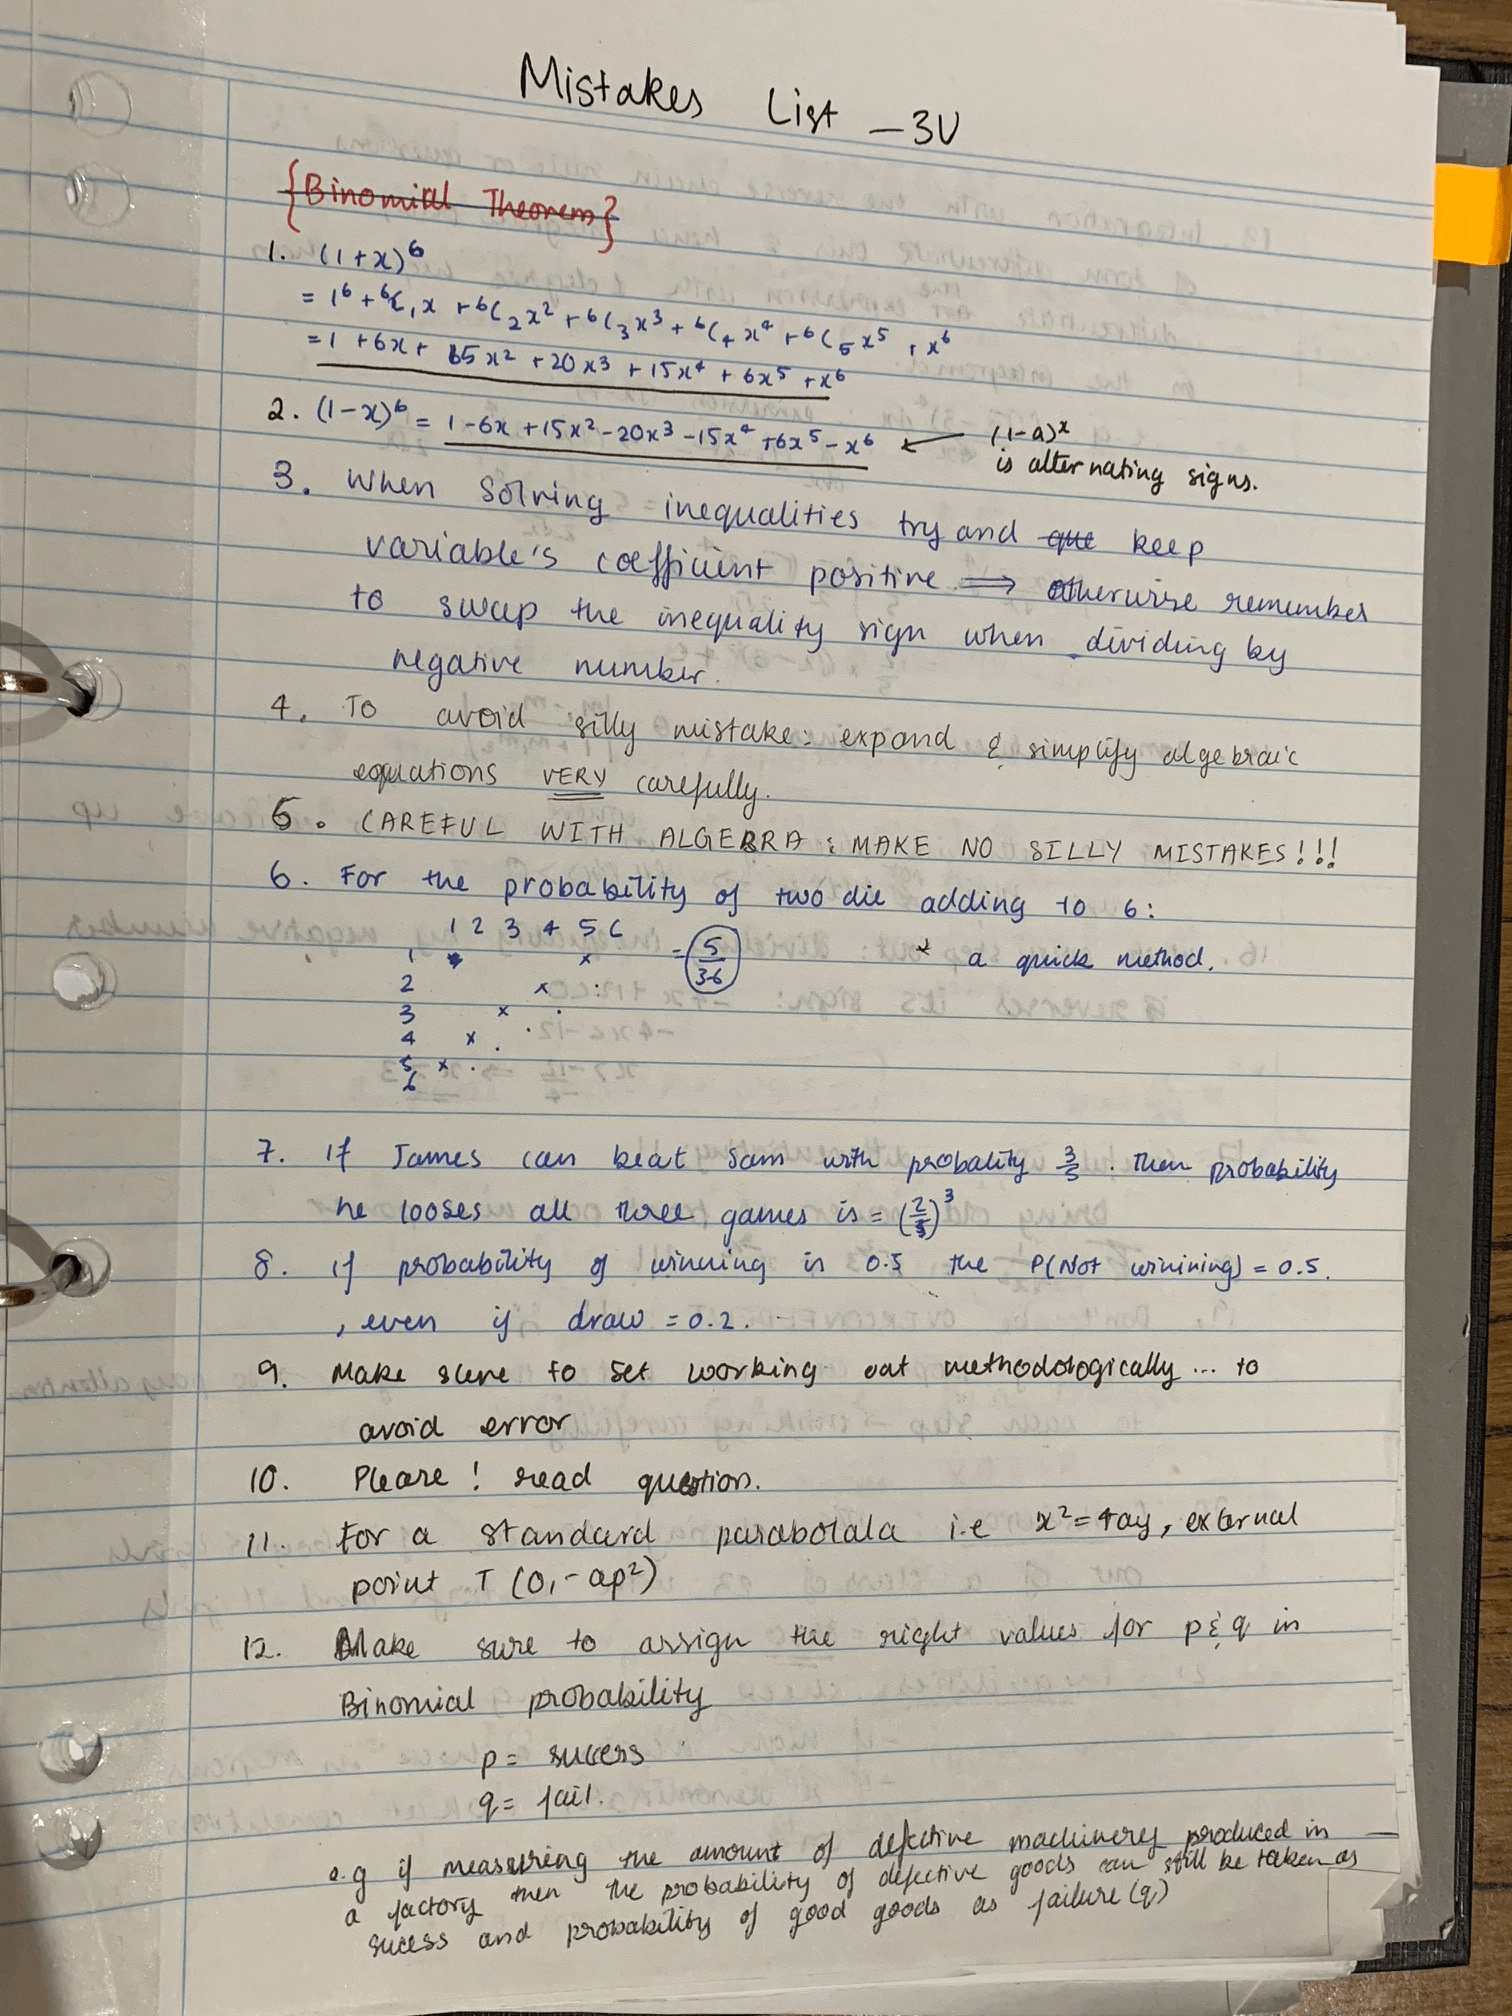 Mistakes List - 3U
{Binomial Theorem}
1. (1+x)⁶
= 1⁶ + ⁶C₁x + ⁶C₂x² + ⁶C₃x³ + ⁶C₄x⁴ + ⁶C₅x⁵ + x⁶
= 1 + 6x + 15x² + 20x³ + 15x⁴ + 6x⁵ + x⁶
2. (1-x)⁶ = 1-6x+15x²-20x³-15x⁴+6x⁵-x⁶ ← (1-a)ˣ
is alternating signs.
3. When solving inequalities try and keep
variable's coefficient positive ⟹ otherwise remember
to swap the inequality sign when dividing by
negative number.
4. To avoid silly mistake: expand & simplify algebraic
equations VERY carefully.
5. CAREFUL WITH ALGEBRA : MAKE NO SILLY MISTAKES!!!
6. For the probability of two die adding to 6:
1 2 3 4 5 6
1 x = 5/36 * a quick method.
2 x
3 x
4 x
5 x
6
7. If James can beat Sam with probality 3/5. Then probability
he looses all three games is = (2/5)³
8. if probability of winning is 0.5 the P(Not winining) = 0.5.
, even if draw = 0.2.
9. Make sure to set working out methodologically... to
avoid error
10. Please! read question.
11. For a standard parabolala i.e x²=4ay, external
point T (0,-ap²)
12. Make sure to assign the right values for p & q in
Binomial probability
p = sucess
q = fail.
e.g if measuring the amount of defective machinery produced in
a factory then the probability of defective goods can still be taken as
sucess and probability of good goods as failure (q)